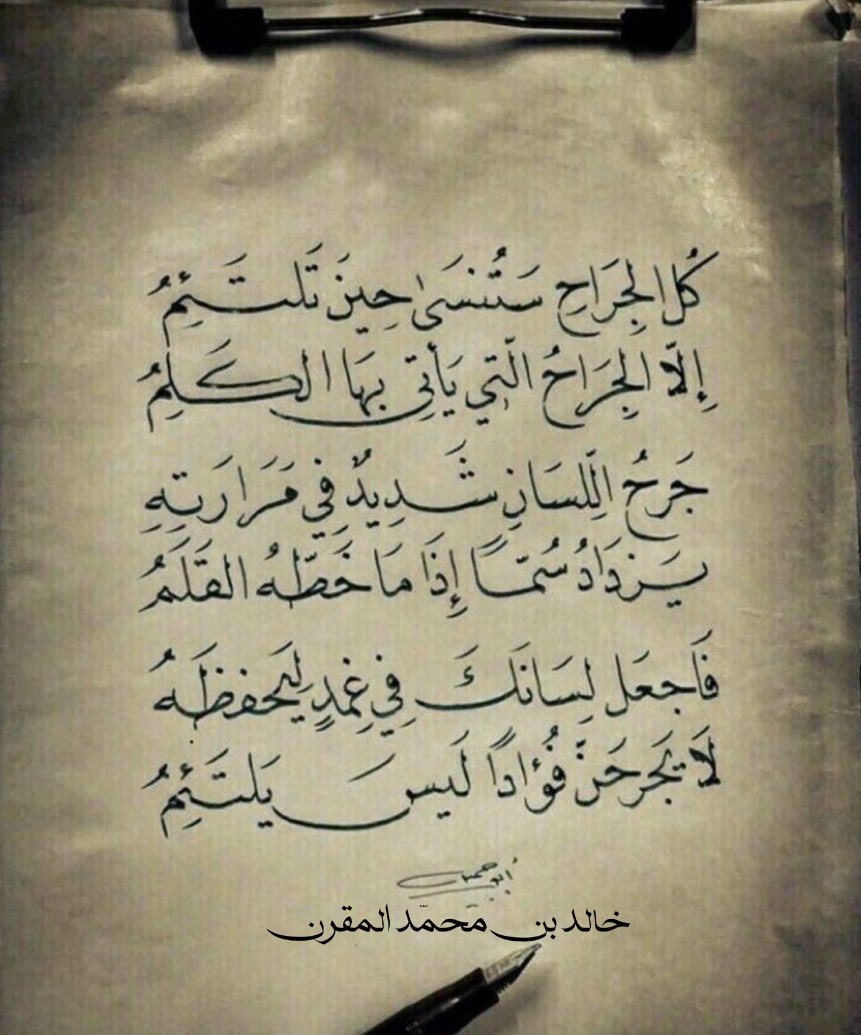 كُلُ الجِرَاحِ سَتُنسَىٰ حِينَ تَلتَئِمُ
إِلَّا الجِرَاحُ الَّتِي يَأتِي بِهَا الكَلِمُ
جَرحُ اللِّسَانِ شَدِيدٌ فِي مَرَارَتِهِ
يَزدَادُ سُمّاً إِذَا مَا خَطَّهُ القَلَمُ
فَاجعَل لِسَانَكَ فِي غِمدٍ لِيَحفظَهُ
لَا يَجرحَنَّ فُؤَاداً لَيسَ يَلتَئِمُ
خالد بن محمّد المقرن